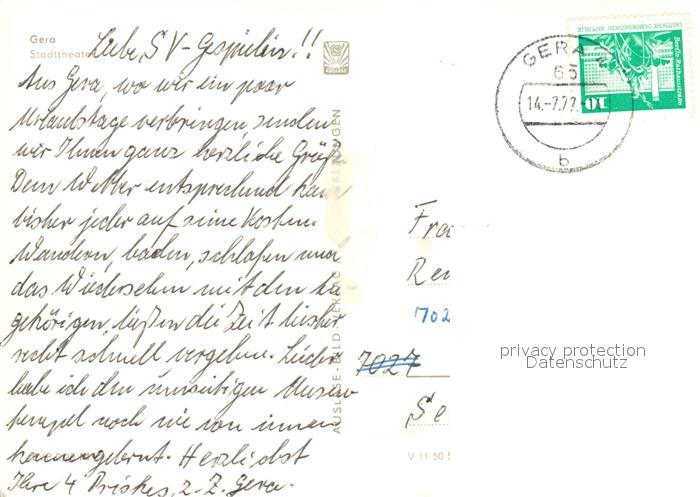 Gera
Stadttheater
Liebe SV-Gespielin!!
Aus Gera, wo wir ein paar
Urlaubstage verbringen, senden
wir Ihnen ganz herzliche Grüße
Dem Wetter entsprechend kam
bisher jeder auf seine Kosten.
Wandern, baden, schlafen und
das Wiedersehn mit den An
gehörigen, ließen die Zeit bisher
recht schnell vergehen. Leider
habe ich den umseitigen Musen
tempel noch nie von innen
kennengelernt. Herzlichst
Ihre 4 Priskes, z. Z. Gera.
AUSLESE-BILD-VERLAG
GERA 2
65
14.-7.77.-
b
DEUTSCHE DEMOKRATISCHE REPUBLIK
Berlin-Rathausstraße
10
Fra
Re
702
7027
Se
V 11 50
privacy protection
Datenschutz